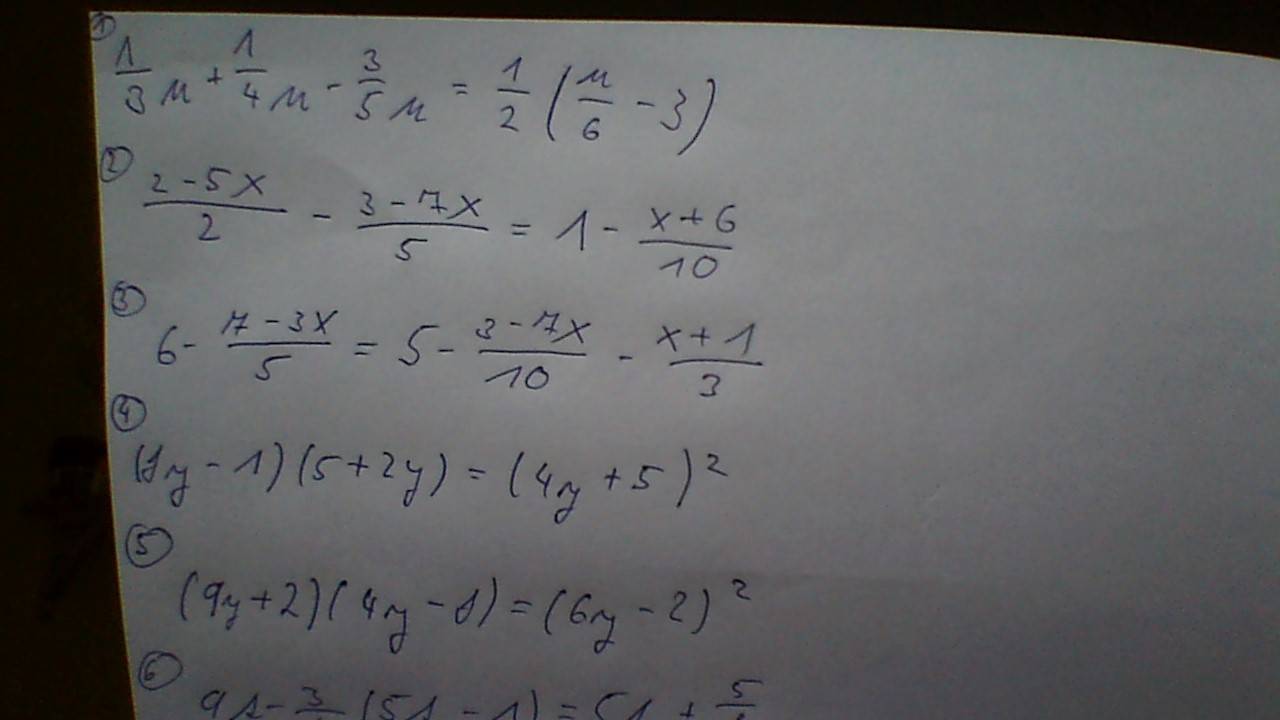 ①
1/3 u + 1/4 u - 3/5 u = 1/2 (u/6 - 3)
②
(2-5x)/2 - (3-7x)/5 = 1 - (x+6)/10
③
6 - (7-3x)/5 = 5 - (3-7x)/10 - (x+1)/3
④
(8y-1)(5+2y) = (4y+5)²
⑤
(9y+2)(4y-1) = (6y-2)²
⑥